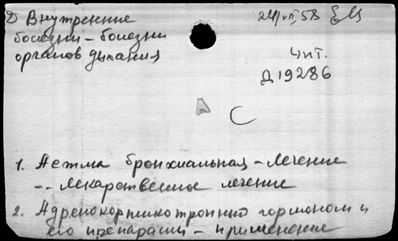 Д Внутренние
болезни - болезни
органов дыхания
24/VII, 58
Чит.
Д 19286
1. Астма бронхиальная - лечение
-- лекарственное лечение
2. Адренокортикотропный гормон и
его препараты - применение